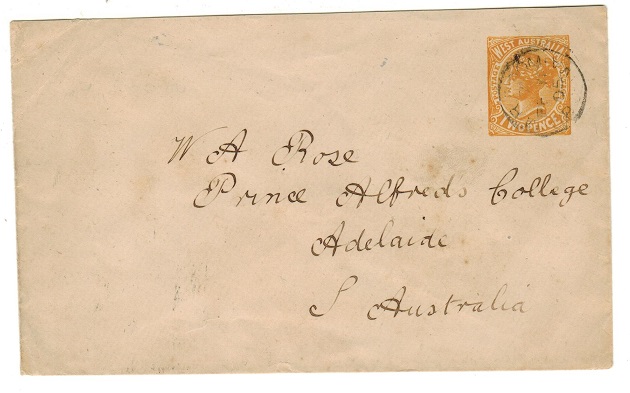 WEST AUSTRALIA
POSTAGE
TWO PENCE
W A Rose
Prince Alfred's College
Adelaide
S Australia